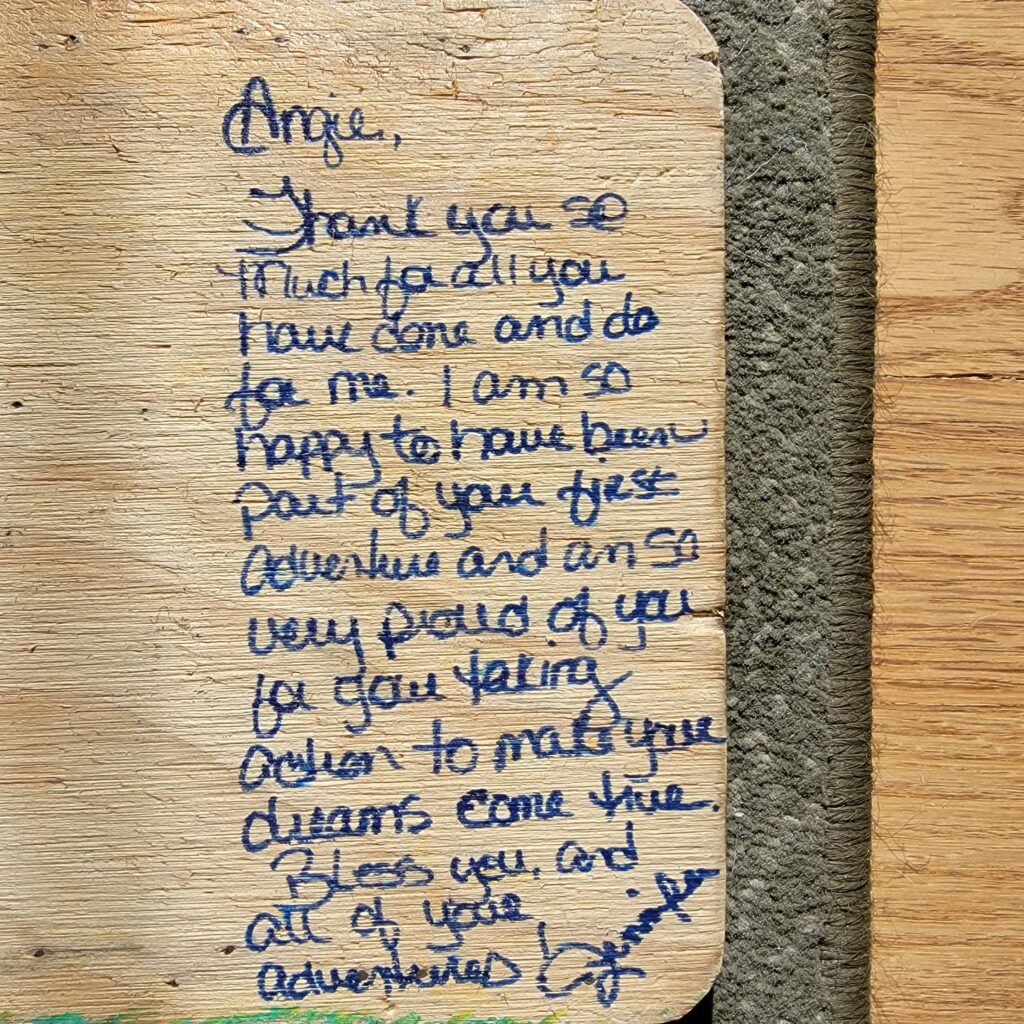 Angie,
Thank you so
Much for all you
have done and do
for me. I am so
happy to have been
part of your first
adventure and am so
very proud of you
for your taking
action to make your
dreams come true.
Bless you, and
all of your
adventures Jennifer